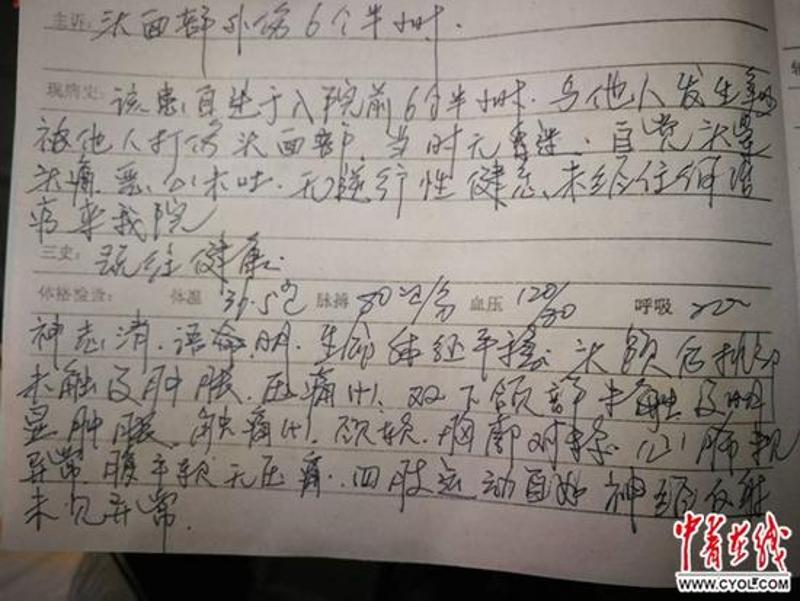 主诉: 头面部外伤6个半小时.
现病史: 该患自述于入院前6个半小时.与他人发生
被他人打伤头面部,当时无昏迷.自觉头晕
头痛.恶心未吐.无逆行性健忘、未经任何治
疗来我院
三史: 既往健康.
体格检查: 体温 36.5℃ 脉搏 80次/分 血压 120/80 呼吸
神志清.语 明.生命体征平稳.头
未触及肿胀.压痛(+).双下颌部未触及明
显肿胀.触痛(+).颈软.胸廓对称.心肺
异常.腹平软无压痛.四肢运动自如 神经反射
未见异常.
中青在线
WWW.CYOL.COM